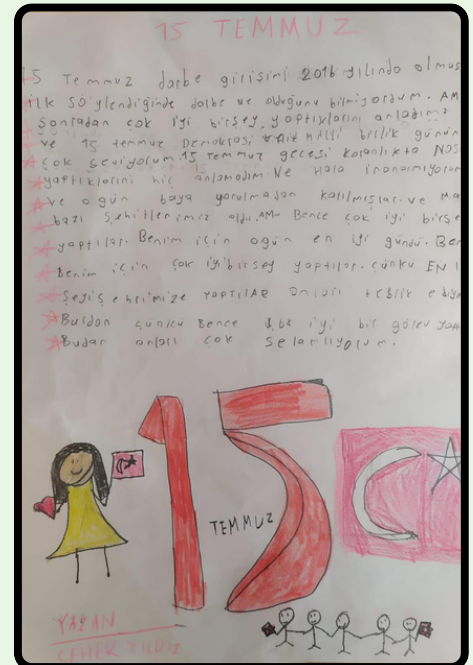 15 TEMMUZ
15 Temmuz darbe girişimi 2016 yılında olmuş
ilk söylendiğinde darbe ne olduğunu bilmiyordum. AM
Sonradan çok iyi birşey yaptıklarını anladım.
ve 15 temmuz Demokrasi milli birlik günün
çok seviyorum 15 Temmuz gecesi karanlıkta NAS
yaptıklarını hiç anlamadım. Ne Hala inanamıyorum
ve o gün baya yorulmadan katılmışlar. ve Ma
bazı Şehitlerimiz oldu. AMA Bence çok iyi birşe
yaptılar. Benim için o gün en iyi gündü. Ben
Benim için çok iyi birşey yaptılar. çünkü EN i
Şeyi şehrimize YAPTILAR onları tebrik ediyo
Burdan çünkü Bence iyi bir görev yap
Budan onları çok selamlıyorum.
15
TEMMUZ
YAZAN
SEHER YILDIZ